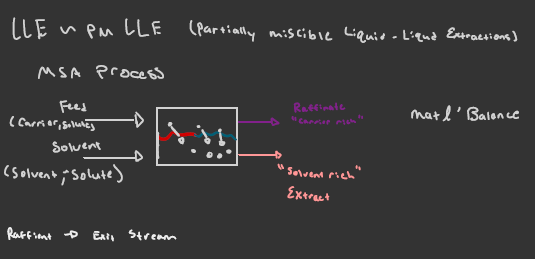 LLE ~ pm LLE (Partially miscible Liquid - Liquid Extractions)
MSA Process
Feed
(Carrier, Solute)
Solvent
(Solvent, ~Solute)
Raffinate
"Carrier rich"
"Solvent rich"
Extract
mat'l' Balance
Raffint → Exit Stream